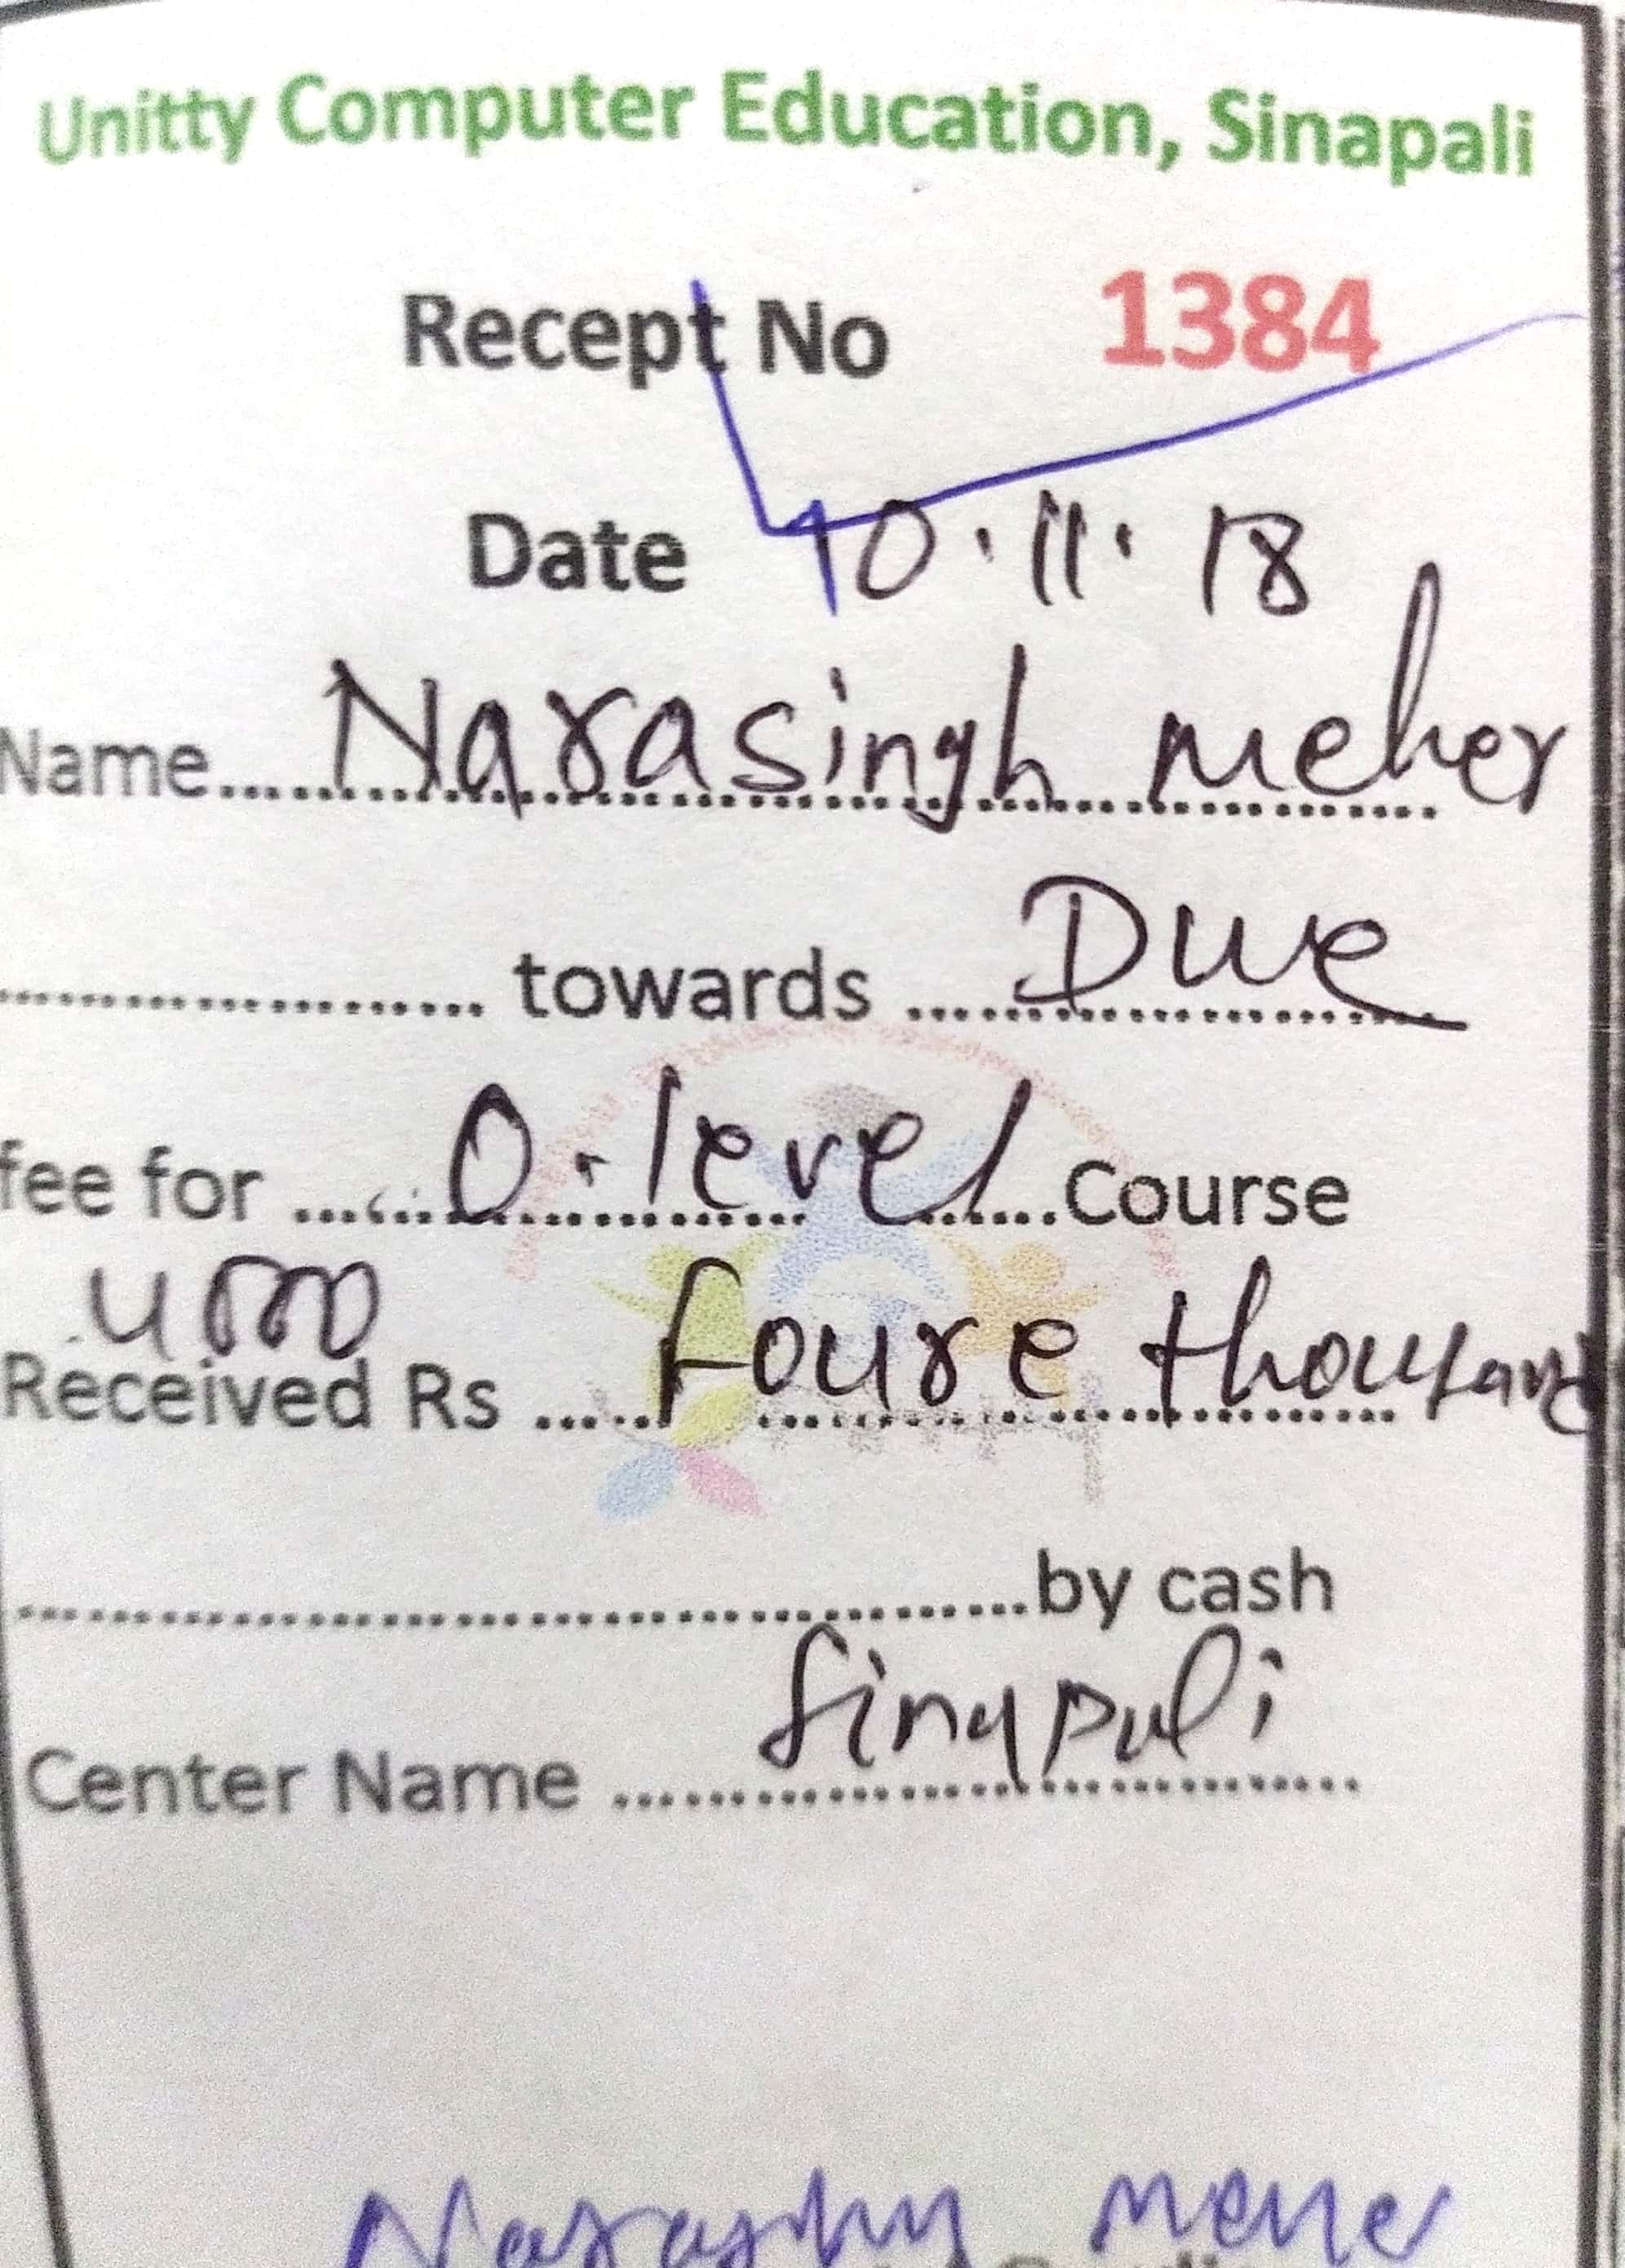 Unitty Computer Education, Sinapali
Recept No 1384
Date 10.11.18
Name.....Narasingh meher
.................... towards ....Due
fee for .....O.level.....Course
4000
Received Rs .....foure thousand
....................................by cash
Center Name ....Sinapali